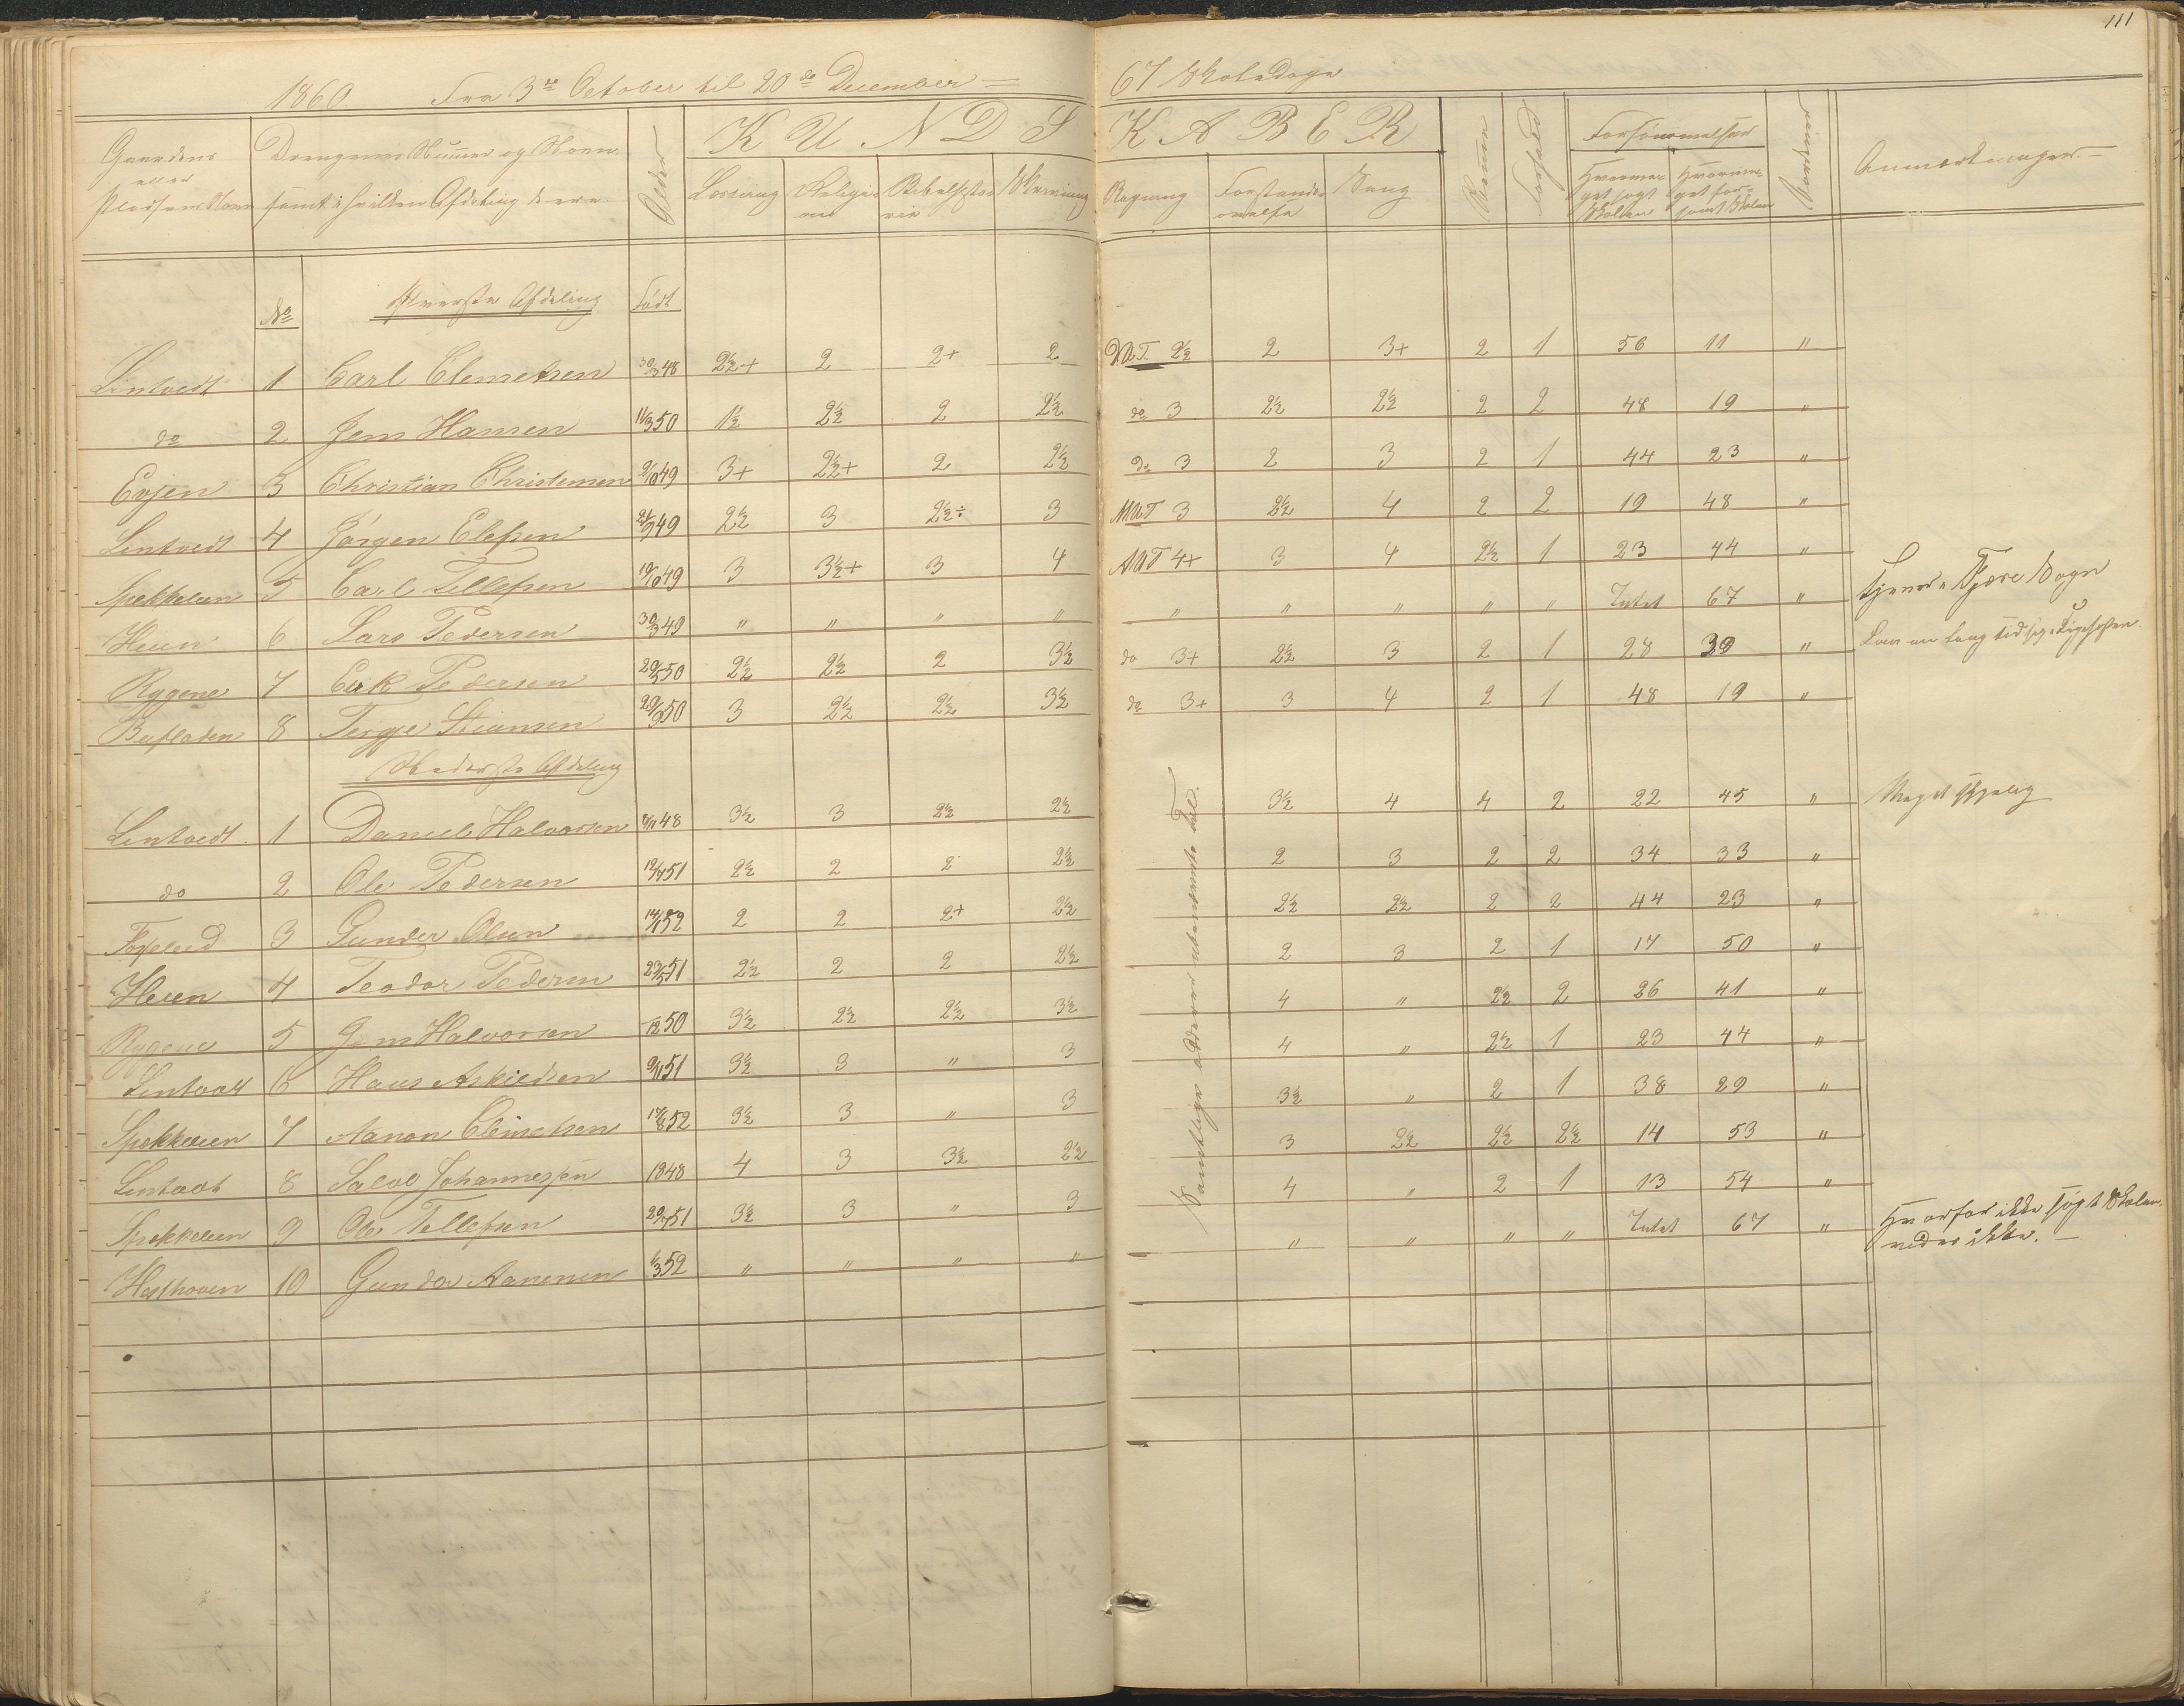 111
1860. Fra 3die October til 20de December = 67 Skoledage
Gaardens eller Pladsens Navn
Drengenes Nummer og Navn samt i hvilken Afdeling de ere.
Alder
KUNDSKABER
Læsning
Religion
Bibelhistorie
Skrivning
Regning
Forstandsøvelse
Sang
Evner
Forhold
Forsømmelser
Hvormeget søgt Skolen
Hvormeget forsømt Skolen
Anmærkninger. —
No
Øverste Afdeling
Født
Lintvedt 1 Carl Clemetsen 30/3 48 2½+ 2 2+ 2 2½ 2 3+ 2 1 56 11 "
do 2 Jens Hansen 11/3 50 1½ 2½ 2 2½ do 3 2½ 2½ 2 2 48 19 "
Evjen 3 Christian Christensen 9/10 49 3+ 2½+ 2 2½ do 3 2 3 2 1 44 23 "
Lintvedt 4 Jörgen Elefsen 21/9 49 2½ 3 2½÷ 3 MUT 3 2½ 4 2 2 19 48 "
Spekkeleen 5 Carl Tellefsen 19/10 49 3 3½+ 3 4 AUT 4+ 3 4 2½ 1 23 44 "
Heien 6 Lars Pedersen 30/3 49 " " " " " " " " " Intet 67 " Tjener i Fjære Sogn
Rygene 7 Eirk Pedersen 20/5 50 2½ 2½ 2 3½ do 3+ 2½ 3 2 1 28 39 "
Bufladen 8 Tergje Stiansen 20/9 50 3 2½ 2½ 3½ do 3+ 3 4 2 1 48 19 "
Nederste Afdeling
Samtlige Addered ubenævnte Tal.
Lintvedt 1 Daniel Halvorsen 8/11 48 3½ 3 2½ 2½ 3½ 4 4 2 22 45 " Meget sygelig
do 2 Ole Pedersen 19/4 51 2½ 2 2 2½ 2 3 2 2 34 33 "
Foxelied 3 Gunder Olsen 14/1 52 2 2 2+ 2½ 2½ 2½ 2 2 44 23 "
Heien 4 Teodor Pedersen 23/5 51 2½ 2 2 2½ 2 3 2 1 17 50 "
Rygene 5 Jens Halvorsen 12 50 3½ 2½ 2½ 3½ 4 " 2½ 2 26 41 "
Lintvedt 6 Hans Askiedsen 9/11 51 3½ 3 " 3 4 " 2½ 1 23 44 "
Spekkeleen 7 Aanon Clemetsen 17/8 52 3½ 3 " 3 3½ " 2 1 38 29 "
Lintvedt 8 Salve Johannesen 1848 4 3 3½ 2½ 3 2½ 2½ 2½ 14 53 "
Spekkeleen 9 Ole Tellefsen 20/4 51 3½ 3 " 3 4 " 2 1 13 54 "
Hesthoven 10 Gunder Aanensen 1/3 52 " " " " " " " " Intet 67 " Hvorfor ikke søgt Skolen, vides ikke. —